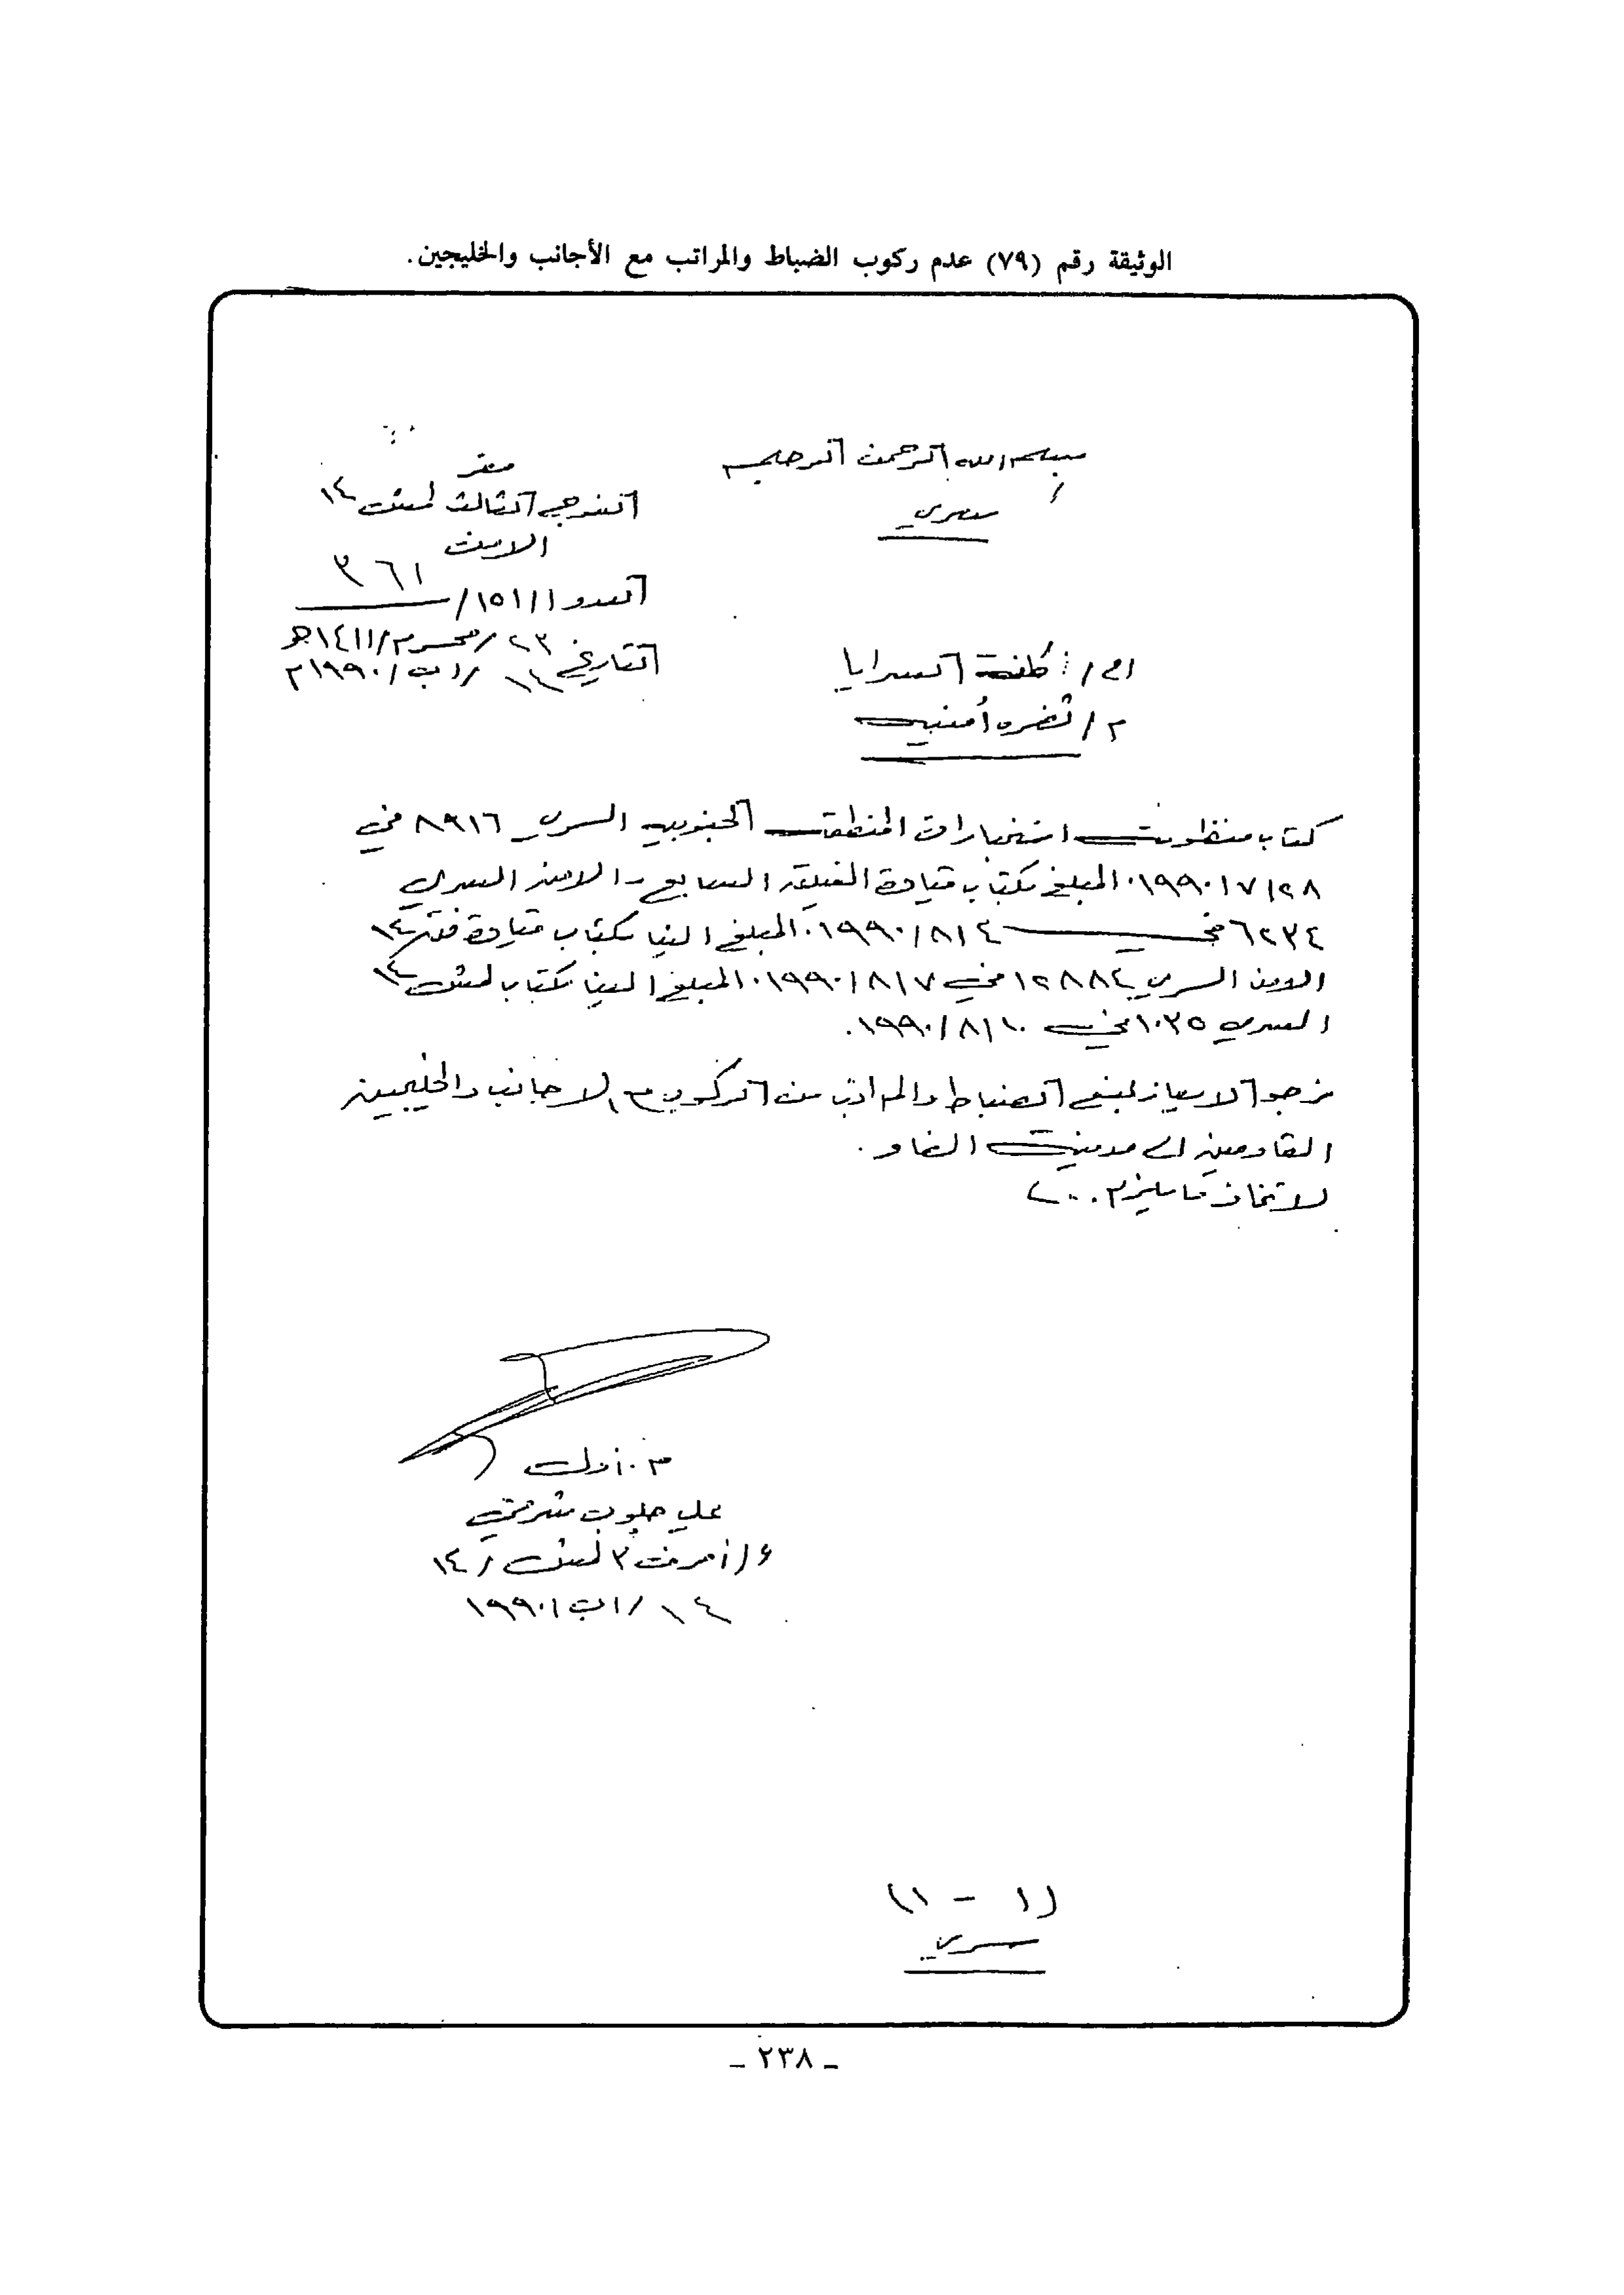 الوثيقة رقم (٧٩) عدم ركوب الضباط والمراتب مع الأجانب والخليجين.
بسم الله الرحمن الرحيم
سري
مقر
الفوج الثالث لمش ١٤
الامن
العدد ١/١٥١/ ٣٦١
التاريخ ٢٣/محرم/١٤١١هـ
١٤/اب/١٩٩٠م
الى/ كافة السرايا
م/ ثغره أمنية
كتاب منظومة استخبارات المنطقة الجنوبيه السري ٨٩١٦ في
٢٨/٧/١٩٩٠ المبلغ بكتاب قيادة الفيلق السابع - الامن السري
٦٢٣٤ في ٤/٨/١٩٩٠ المبلغ الينا بكتاب قيادة فق ١٤
الامن السري ١٢٨٨٤ في ٧/٨/١٩٩٠ المبلغ الينا بكتاب لمش ١٤
السري ١٠٣٥ في ١٠/٨/١٩٩٠.
نرجو الايعاز لمنع الضباط والمراتب من الركوب مع الاجانب والخليجين
القادمين الى مدينة الفاو.
لاتخاذ ما يلزم ...
م. أول
علي
٣ لمش/١٤
١٤/اب/١٩٩٠
(١ - ١)
سري
- ٢٣٨ -